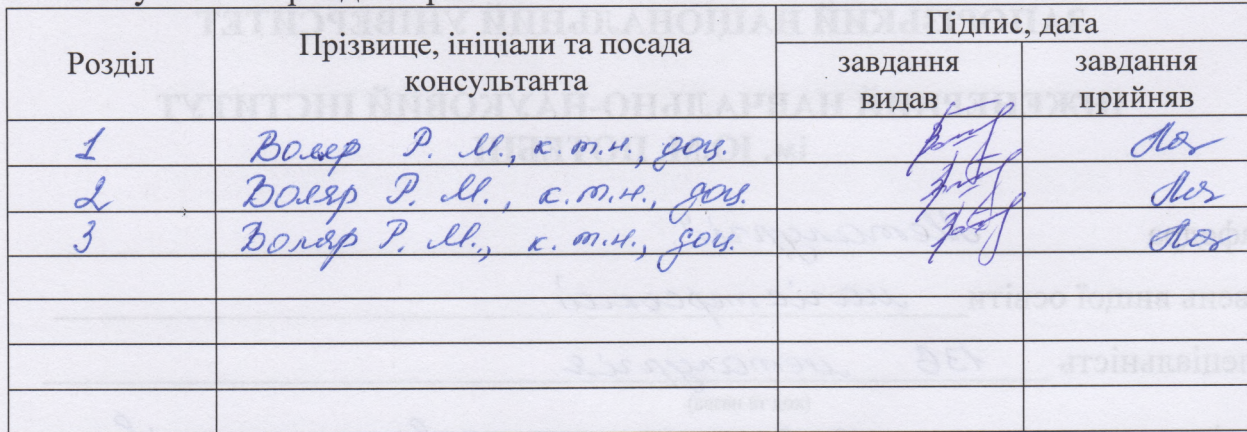 Розділ
Прізвище, ініціали та посада
консультанта
Підпис, дата
завдання
видав
завдання
прийняв
1 Воляр Р. М., к.т.н., доц.
2 Воляр Р. М., к.т.н., доц.
3 Воляр Р. М., к.т.н., доц.